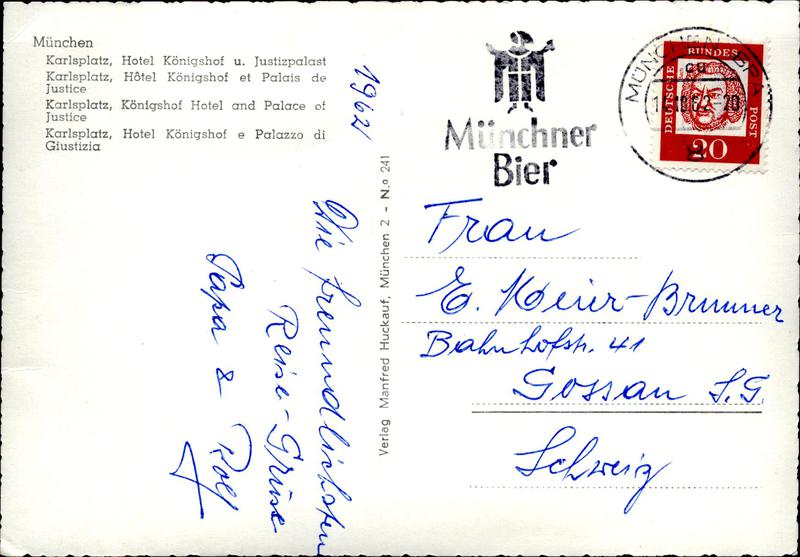 München
Karlsplatz, Hotel Königshof u. Justizpalast
Karlsplatz, Hôtel Königshof et Palais de
Justice
Karlsplatz, Königshof Hotel and Palace of
Justice
Karlsplatz, Hotel Königshof e Palazzo di
Giustizia
1962
Die freundlichsten
Reise-Grüsse
Papa & Rolf
Verlag Manfred Huckauf, München 2 - N.o 241
Münchner
Bier
MÜNCHEN
DEUTSCHE
BUNDES
POST
20
Frau
E. Meier-Brunner
Bahnhofstr. 41
Gossau S.G.
Schweiz